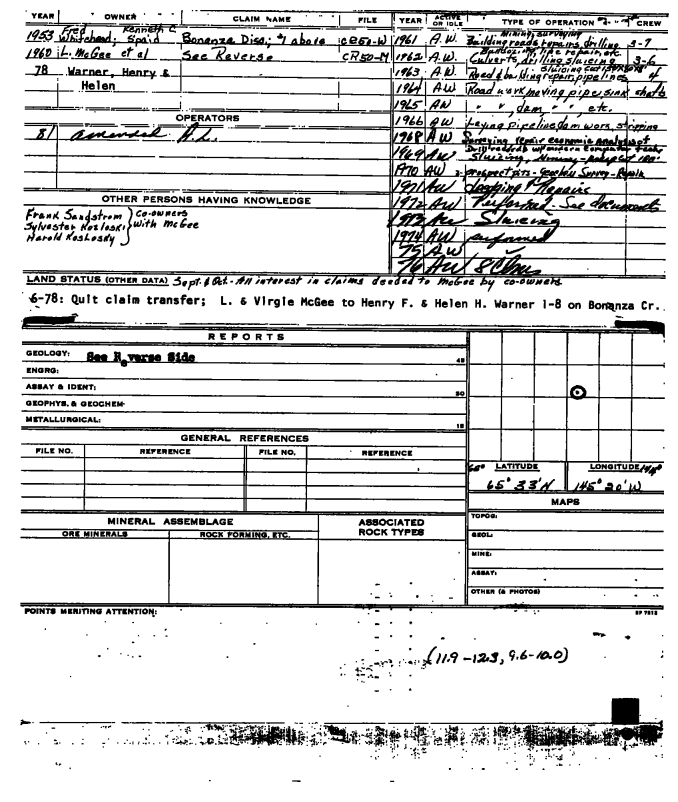 YEAR OWNER CLAIM NAME FILE YEAR ACTIVE OR IDLE TYPE OF OPERATION CREW
1953 Fred Whitehead; Kenneth C. Spaid Bonanza Disc; #1 above CR50-W
1960 L. McGee et al See Reverse CR50-M
78 Warner, Henry &
Helen
OPERATORS
81 amended A.L.
OTHER PERSONS HAVING KNOWLEDGE
Frank Sandstrom } co-owners
Sylvester Kozloski } with McGee
Harold Koslosky
1961 A.W. Mining, surveying
Building roads, repairs, drilling 3-7
1962 A.W. pipe repair, etc.
Culverts, drilling sluicing 3-6
1963 A.W. Road & building repair, pipelines 4
1964 AW Road work, moving pipe, sink shafts
1965 AW " ", dam " ", etc.
1966 AW Laying pipeline, dam work, stripping
1968 AW Surveying, repair economic analysis of
1969 AW Sluicing,
1970 AW prospect pits - Geochem Survey - Repair
1971 AW Repairs
1972 AW Performed. See documents
1973 AW Sluicing
1974 AW performed
75 AW
76 AW 8 Clms
LAND STATUS (OTHER DATA) Sept. & Oct. - All interest in claims deeded to McGee by co-owners
6-78: Quit claim transfer; L. & Virgie McGee to Henry F. & Helen H. Warner 1-8 on Bonanza Cr.
REPORTS
GEOLOGY: See Reverse Side 45
ENGRG:
ASSAY & IDENT: 30
GEOPHYS. & GEOCHEM
METALLURGICAL: 15
GENERAL REFERENCES
FILE NO. REFERENCE FILE NO. REFERENCE
65° LATITUDE LONGITUDE 144°
65° 33' N 145° 20' W
MAPS
TOPOG:
GEOL:
MINE:
ASSAY:
OTHER (& PHOTOS)
MINERAL ASSEMBLAGE ASSOCIATED ROCK TYPES
ORE MINERALS ROCK FORMING, ETC.
POINTS MERITING ATTENTION:
(11.9-12.3, 9.6-10.0)